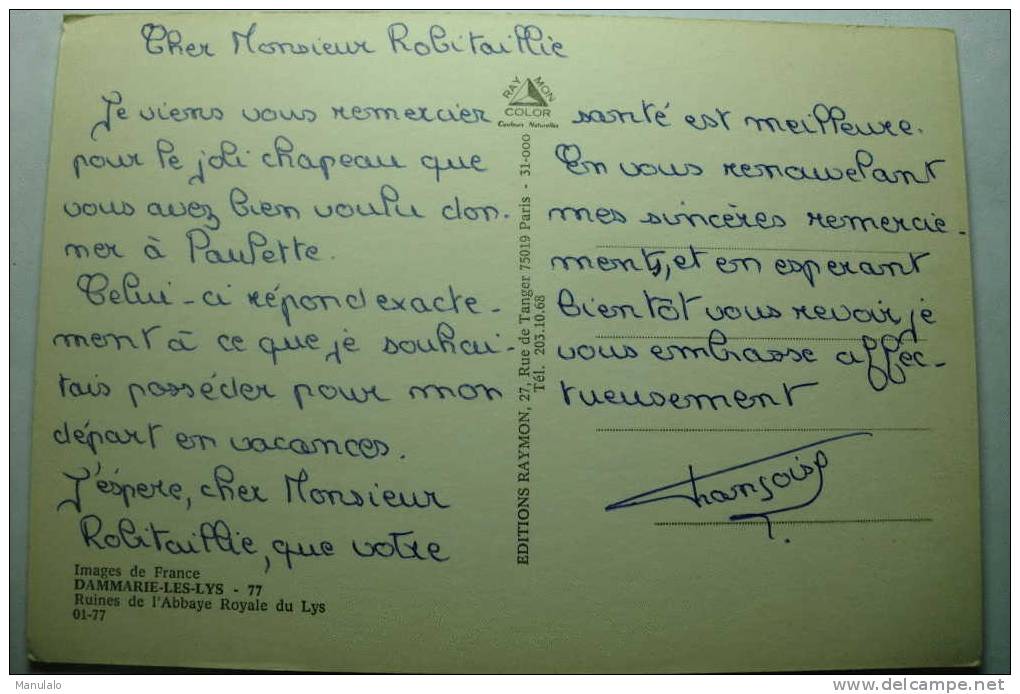 Cher Monsieur Robitaillie
Je viens vous remercier
pour le joli chapeau que
vous avez bien voulu don-
ner à Paulette.
Celui-ci répond exacte-
ment à ce que je souhai-
tais posséder pour mon
départ en vacances.
J'éspère, cher Monsieur
Robitaillie, que votre
santé est meilleure.
En vous renouvelant
mes sincères remercie-
ments, et en esperant
bientôt vous revoir je
vous embrasse affec-
tueusement
Françoise
T.
RAY MON
COLOR
Couleurs Naturelles
EDITIONS RAYMON, 27, Rue de Tanger 75019 Paris - 31-000
Tél. 203.10.68
Images de France
DAMMARIE-LES-LYS - 77
Ruines de l'Abbaye Royale du Lys
01-77
Manulalo
delcampe.net